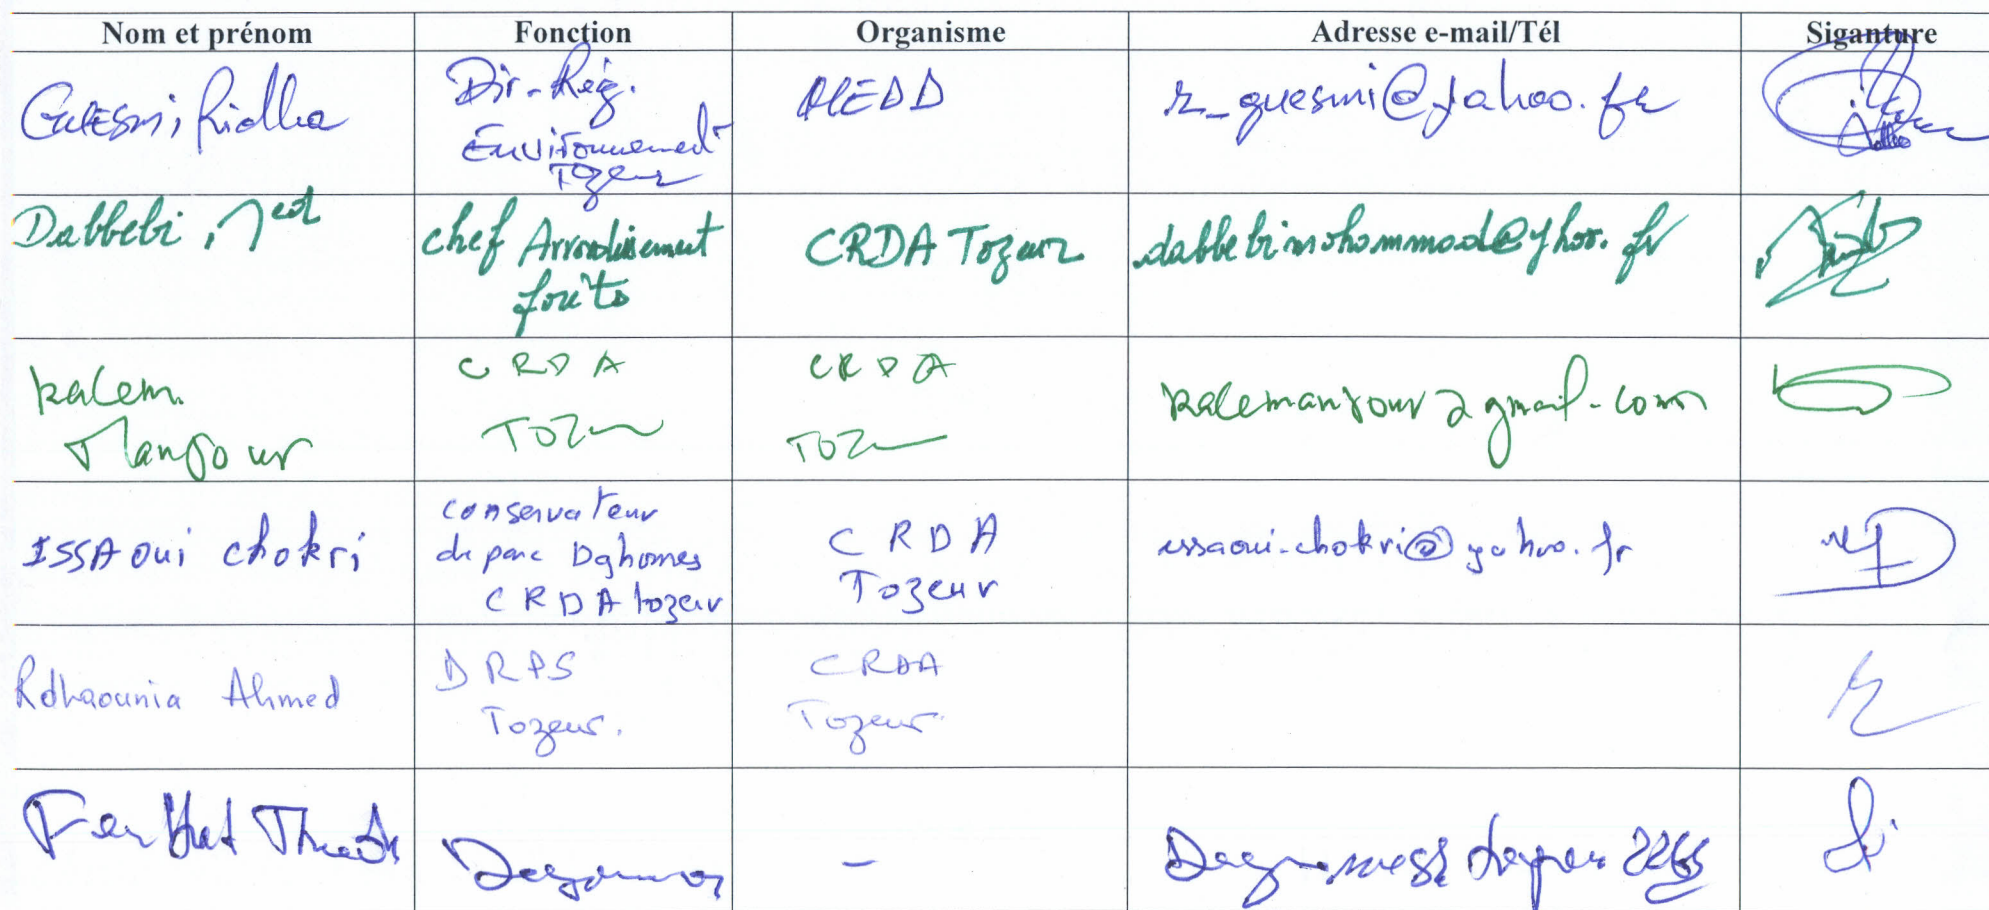 Nom et prénom Fonction Organisme Adresse e-mail/Tél Siganture
Guesmi Ridha
Dir. Rég.
Environnement
Tozeur
MEDD
r_guesmi@yahoo.fr
Dabbebi, Med
chef Arrondissement
forêts
CRDA Tozeur
dabbebimohammad@yhoo.fr
kalem
Mansour
CRDA
Tozeur
CRDA
Tozeur
kalemansour@gmail.com
ISSAOui chokri
conservateur
du parc Dghomes
CRDA tozeur
CRDA
Tozeur
issaoui-chokri@yahoo.fr
Rdhaounia Ahmed
DRPS
Tozeur.
CRDA
Tozeur
Ferthat
-
2265